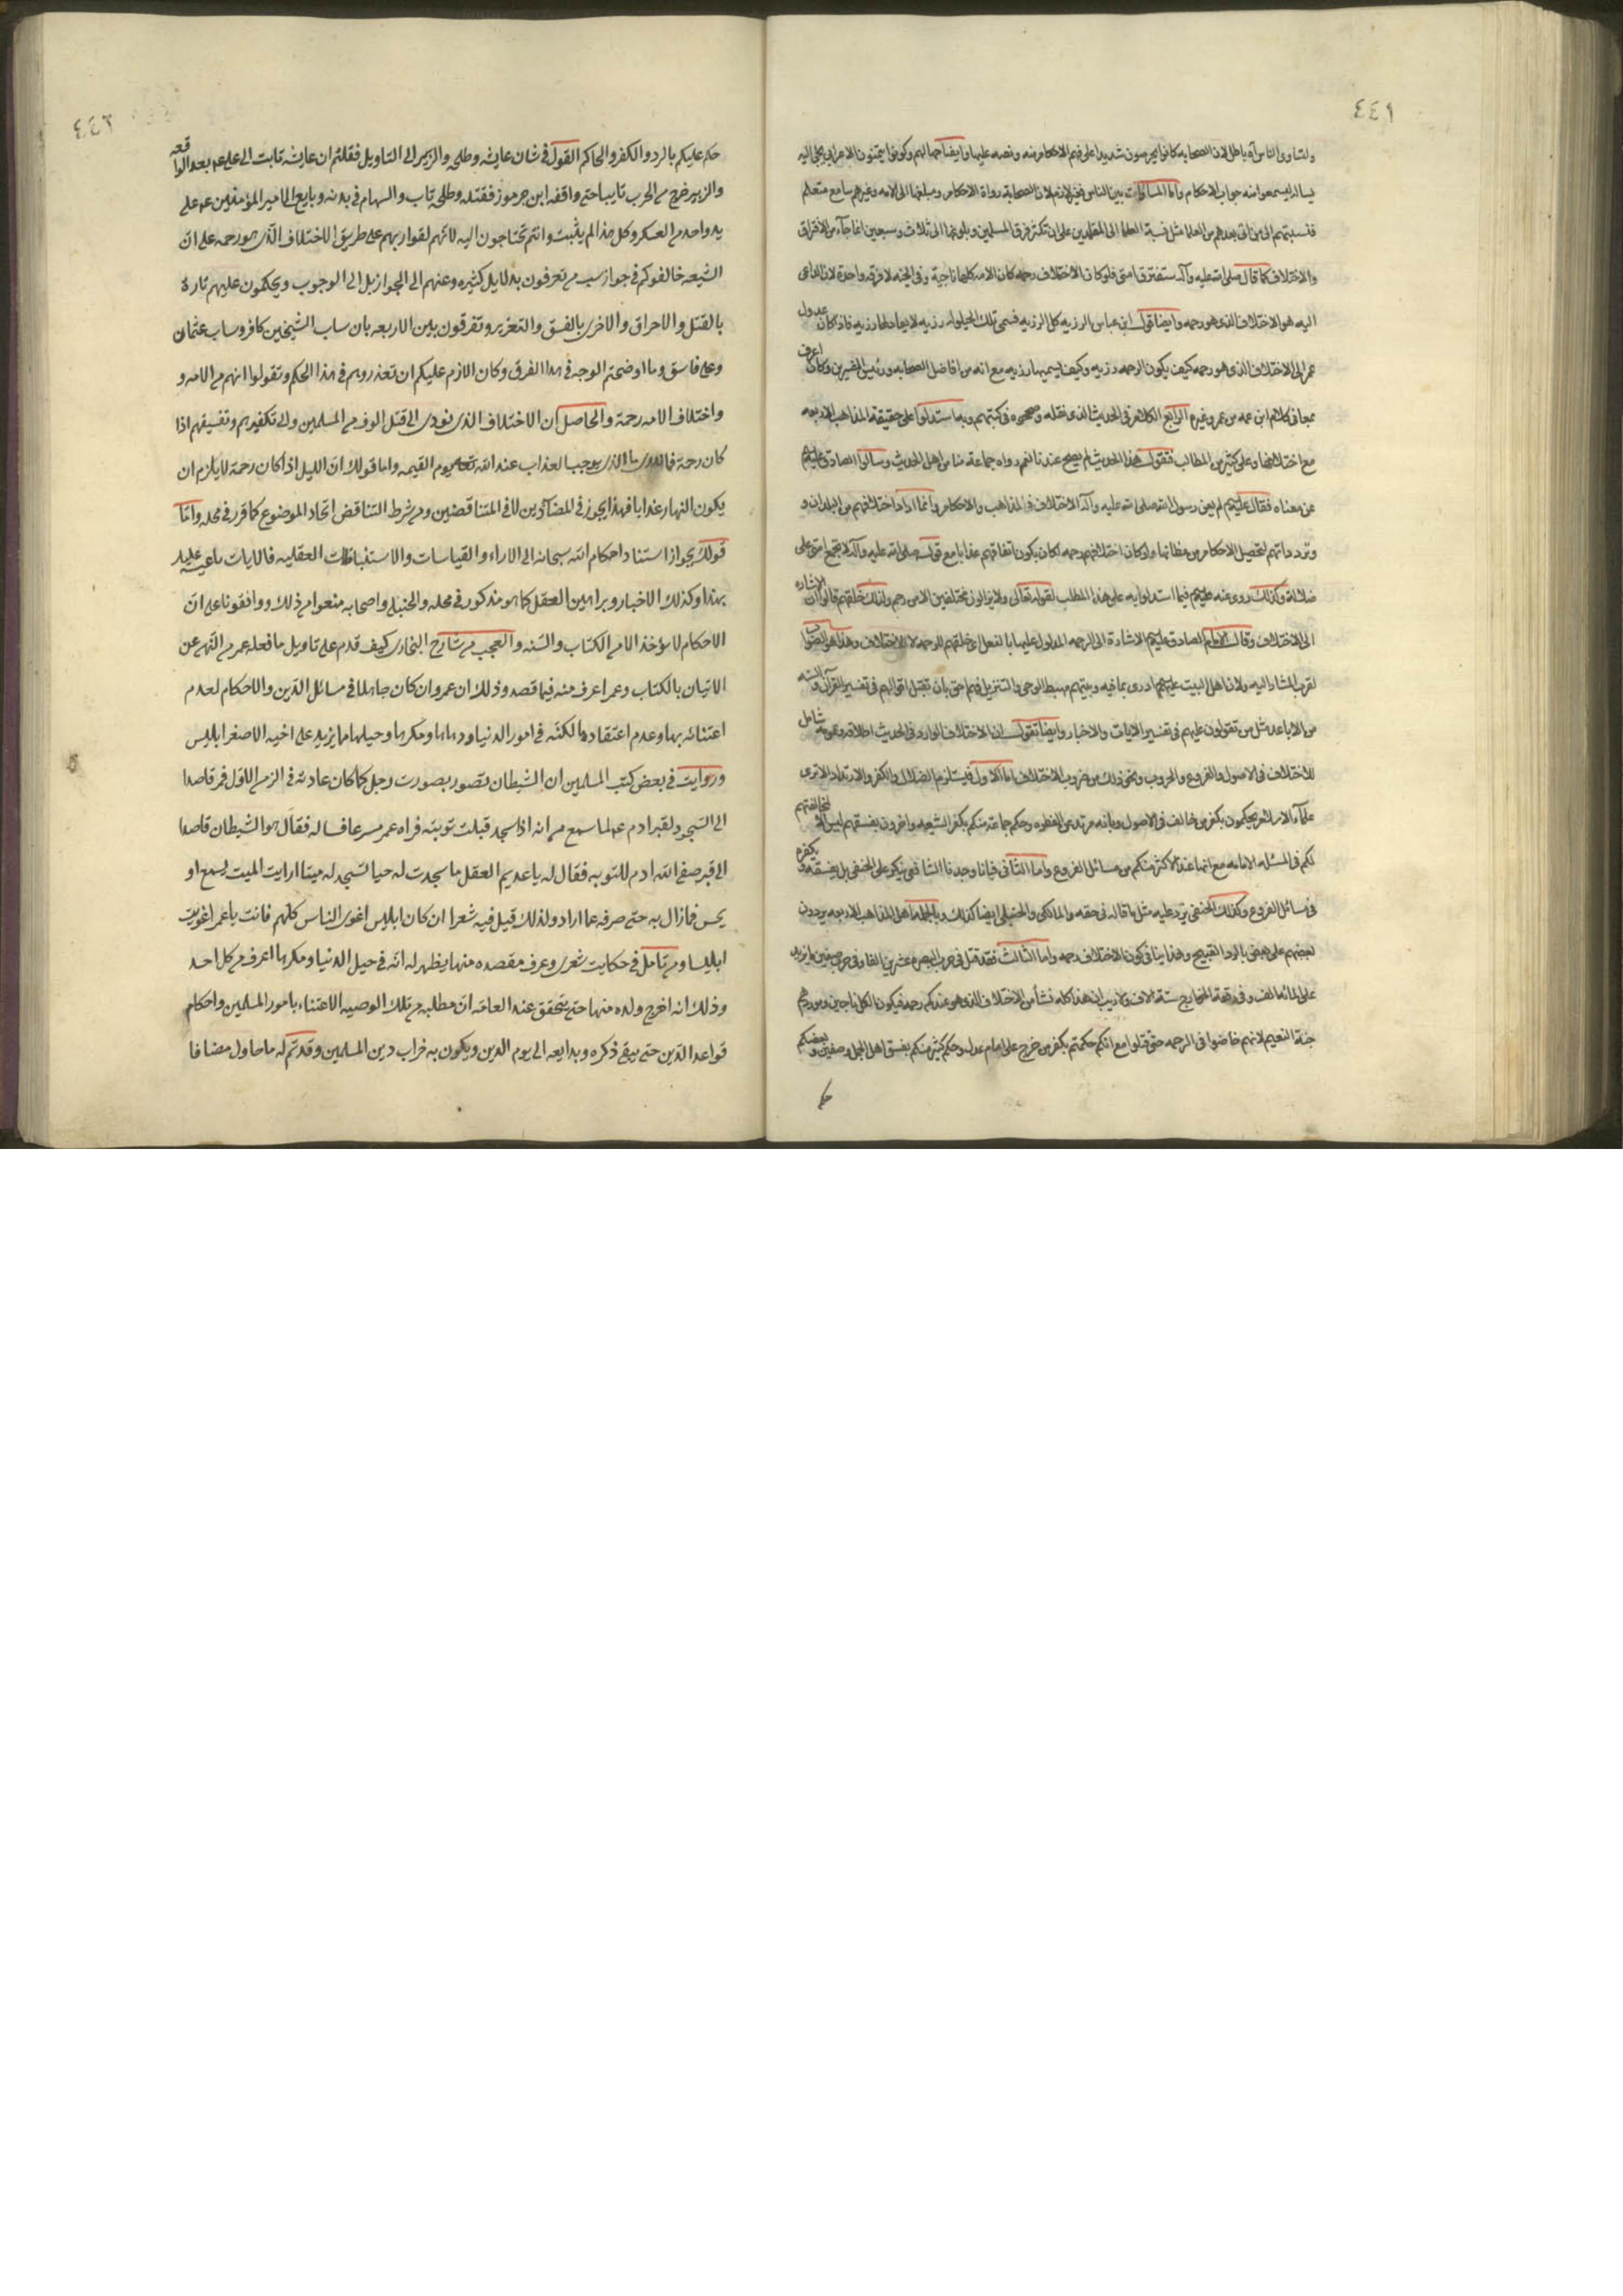 ٤٤١
ولتساوى الناس آه باطل لان الصحابه كانوا يحرصون شديدا على فهم الاحكام منه ونصه عليها وايضا جهالهم وكونوا يتمنون الاعرابى يجئ اليه
يساله ليسمعوا منه جواب الاحكام واما المساوات بين الناس فغير لازم لان الصحابة رواة الاحكام ومبلغها الى الامه وغيرهم سامع متعلم
فنسبتهم الى من اتى بعدهم من العلماء مثل نسبة العلماء الى المقلدين على ان تكثر فرق المسلمين وبلوغها الى ثلاث وسبعين انما جآء من الافتراق
والاختلاف كما قال صلى الله عليه وآله ستفترق امتى فلو كان الاختلاف رحمه كان الامه كلها ناجية وفى الجنه لا فرقه واحدة لان الداعى
اليه هو الاختلاف الذى هو رحمه وايضا قول ابن عباس الرزيه كل الرزيه فسمى تلك الحيلوله رزيه لا يعادلها رزيه فاذ كان عدول
عمر الى الاختلاف الذى هو رحمه كيف يكون الرحمه رزيه وكيف يسميها رزيه مع انه من افاضل الصحابه ورئيس المفسرين وكان اعرف
بمعانى كلام ابن عمه من عمر وغيره الرابع الكلام فى الحديث الذى نقله وصححوه فى كتبهم وبه استدلوا على حقيقة المذاهب الاربعه
مع اختلافها وعلى كثير من المطالب فنقول هذا الحديث لم يصح عندنا نعم رواه جماعة منا من اهل الحديث وسالوا الصادق عليهم
عن معناه فقال عليهم لم يعن رسول الله صلى الله عليه وآله الاختلاف فى المذاهب والاحكام وانما اراد اختلافهم من البلدان و
وترددهم لتحصيل الاحكام من مظانها ولو كان اختلافهم رحمه لكان يكون اتفاقهم عذابا مع قوله صلى الله عليه وآله لا تجتمع امتى على
ضلالة وكذلك روى عنه عليهم فيما استدلوا به على هذا المطلب لقوله تعالى ولا يزالون مختلفين الا من رحم ولذلك خلقهم قالوا ان الاشاره
الى الاختلاف وقال الامام الصادق عليهم الاشارة الى الرحمه المدلول عليها بالفعل اى خلقهم للرحمه لا للاختلاف وهذا هو الصواب
لقرب المشار اليه ولان اهل البيت عليهم ادرى بما فيه وبيتهم مهبط الوحى والتنزيل فهم احق بان تقبل اقوالهم فى تفسير القرآن والسنه
من الاباعد مثل من تقولون عليهم فى تفسير الايات والاخبار وايضا نقول ان الاختلاف الوارد فى الحديث اطلاقه وعمومه شامل
للاختلاف فى الاصول والفروع والحروب ونحو ذلك من ضروب الاختلاف اما الاول فيستلزم الضلال والكفر والارتداد الا ترى
علمآء الاسلام يحكمون بكفر من خالف فى الاصول وبانه مرتد عن الفطره وحكم جماعة منكم بكفر الشيعه واخرون بفسقهم ليس الا لمخالفتهم
لكم فى المسئله الامامه مع انها عند اكثر منكم من مسائل الفروع واما الثانى فانا وجدنا الشافعى ينكر على الحنفى بل يفسقه ويكفره
فى مسائل الفروع وكذلك الحنفى يرد عليه مثل ما قاله فى حقه والمالكى والحنبلى ايضا كذلك وبالجمله اهل المذاهب الاربعه يردون
بعضهم على بعض بالرد القبيح وهذا ينافى كون الاختلاف رحمه واما الثالث فقد قتل فى حرب البصره عشرين الفا وفى حرب صفين ما يزيد
على المائه الف وفى وقعة الخوارج ستة الاف ولا ريب ان هذا كله نشأ من الاختلاف الذى هو عندكم رحمه فيكون الكل ناجين وموردهم
جنة النعيم لانهم خاضوا فى الرحمه حتى قتلوا مع انكم حكمتم بكفر من خرج على امام عدل وحكم كثير منكم بفسق اهل الجمل وصفين وبعضكم
٤٤٢
حكم عليكم بالرد والكفر والحاكم القول فى شان عايشه وطلحه والزبير الى التاويل فقلتم ان عايشه تابت الى على عه بعد الواقعه
والزبير خرج من الحرب تايبا حتى واقفه ابن جرموز فقتله وطلحه تاب والسهام فى بدنه وبايع الامير المؤمنين عه على
يد واحد من العسكر وكل هذا لم يثبت وانتم تحتاجون اليه لانهم لقوا ربهم على طريق الاختلاف الذى هو رحمه على ان
الشيعه خالفوكم فى جواز سب من تعرفون بدلايل كثيره وعنهم الى الجواز بل الى الوجوب ويحكمون عليهم تارة
بالقتل والاحراق والاخرى بالفسق والتعزير وتفرقون بين الاربعه بان ساب الشيخين كافر وساب عثمان
وعلى فاسق وما اوضحتم الوجه فى هذا الفرق وكان الازم عليكم ان تعذروهم فى هذا الحكم وتقولوا انهم من الامه و
واختلاف الامه رحمة والحاصل ان الاختلاف الذى يؤدى الى قتل الوف من المسلمين والى تكفيرهم وتفسيقهم اذا
كان رحمة فالذى ما الذى يوجب العذاب عند الله تعالى يوم القيمه واما قولك ان الليل اذا كان رحمة لا يلزم ان
يكون النهار عذابا فهذا يجوز فى المضادين لا فى المتناقضين ومن شرط التناقض اتحاد الموضوع كما قرر فى محله واما
قولك بجواز استناد احكام الله سبحانه الى الاراء والقياسات والاستنباطات العقليه فالايات ناعية عليك
بهذا وكذلك الاخبار وبراهين العقل كما هو مذكور فى محله والحنبلى واصحابه منعوا من ذلك ووافقونا على ان
الاحكام لا يؤخذ الا من الكتاب والسنه والعجب من شارح البخارى كيف قدم على تاويل ما فعله عمر من النهى عن
الاتيان بالكتاب وعمر اعرف منه فيما قصد وذلك ان عمر وان كان جاهلا فى مسائل الدين والاحكام لعدم
اعتنائه بها وعدم اعتقاده لكنه فى امور الدنيا ودهائها ومكرها وحيلها ما يزيد على اخيه الاصغر ابليس
ورويت فى بعض كتب المسلمين ان الشيطان تصور بصورت رجل كما كان عادته فى الزمن الاول فمر قاصدا
الى السجود لقبر ادم عه لما سمع من انه اذا سجد قبلت توبته فراه عمر مسرعا فساله فقال هو الشيطان قاصدا
الى قبر صفى الله ادم للتوبه فقال له يا عديم العقل ما سجدت له حيا تسجد له ميتا ارايت الميت يسمع او
يحس فما زال به حتى صرفه عما اراد ولذلك قيل فيه شعرا ان كان ابليس اغوى الناس كلهم فانت يا عمر اغويت
ابليسا ومن تامل فى حكايت شعرى وعرف مقصده منها يظهر له انه فى حيل الدنيا ومكرها اعرف من كل احد
وذلك انه اخرج ولده منها حتى يتحقق عند العامه ان مطلبه من تلك الوصيه الاعتناء بامور المسلمين واحكام
قواعد الدين حتى يبقى ذكره وبدايعه الى يوم الدين ويكون به خراب دين المسلمين وقد تم له ما حاول مضافا